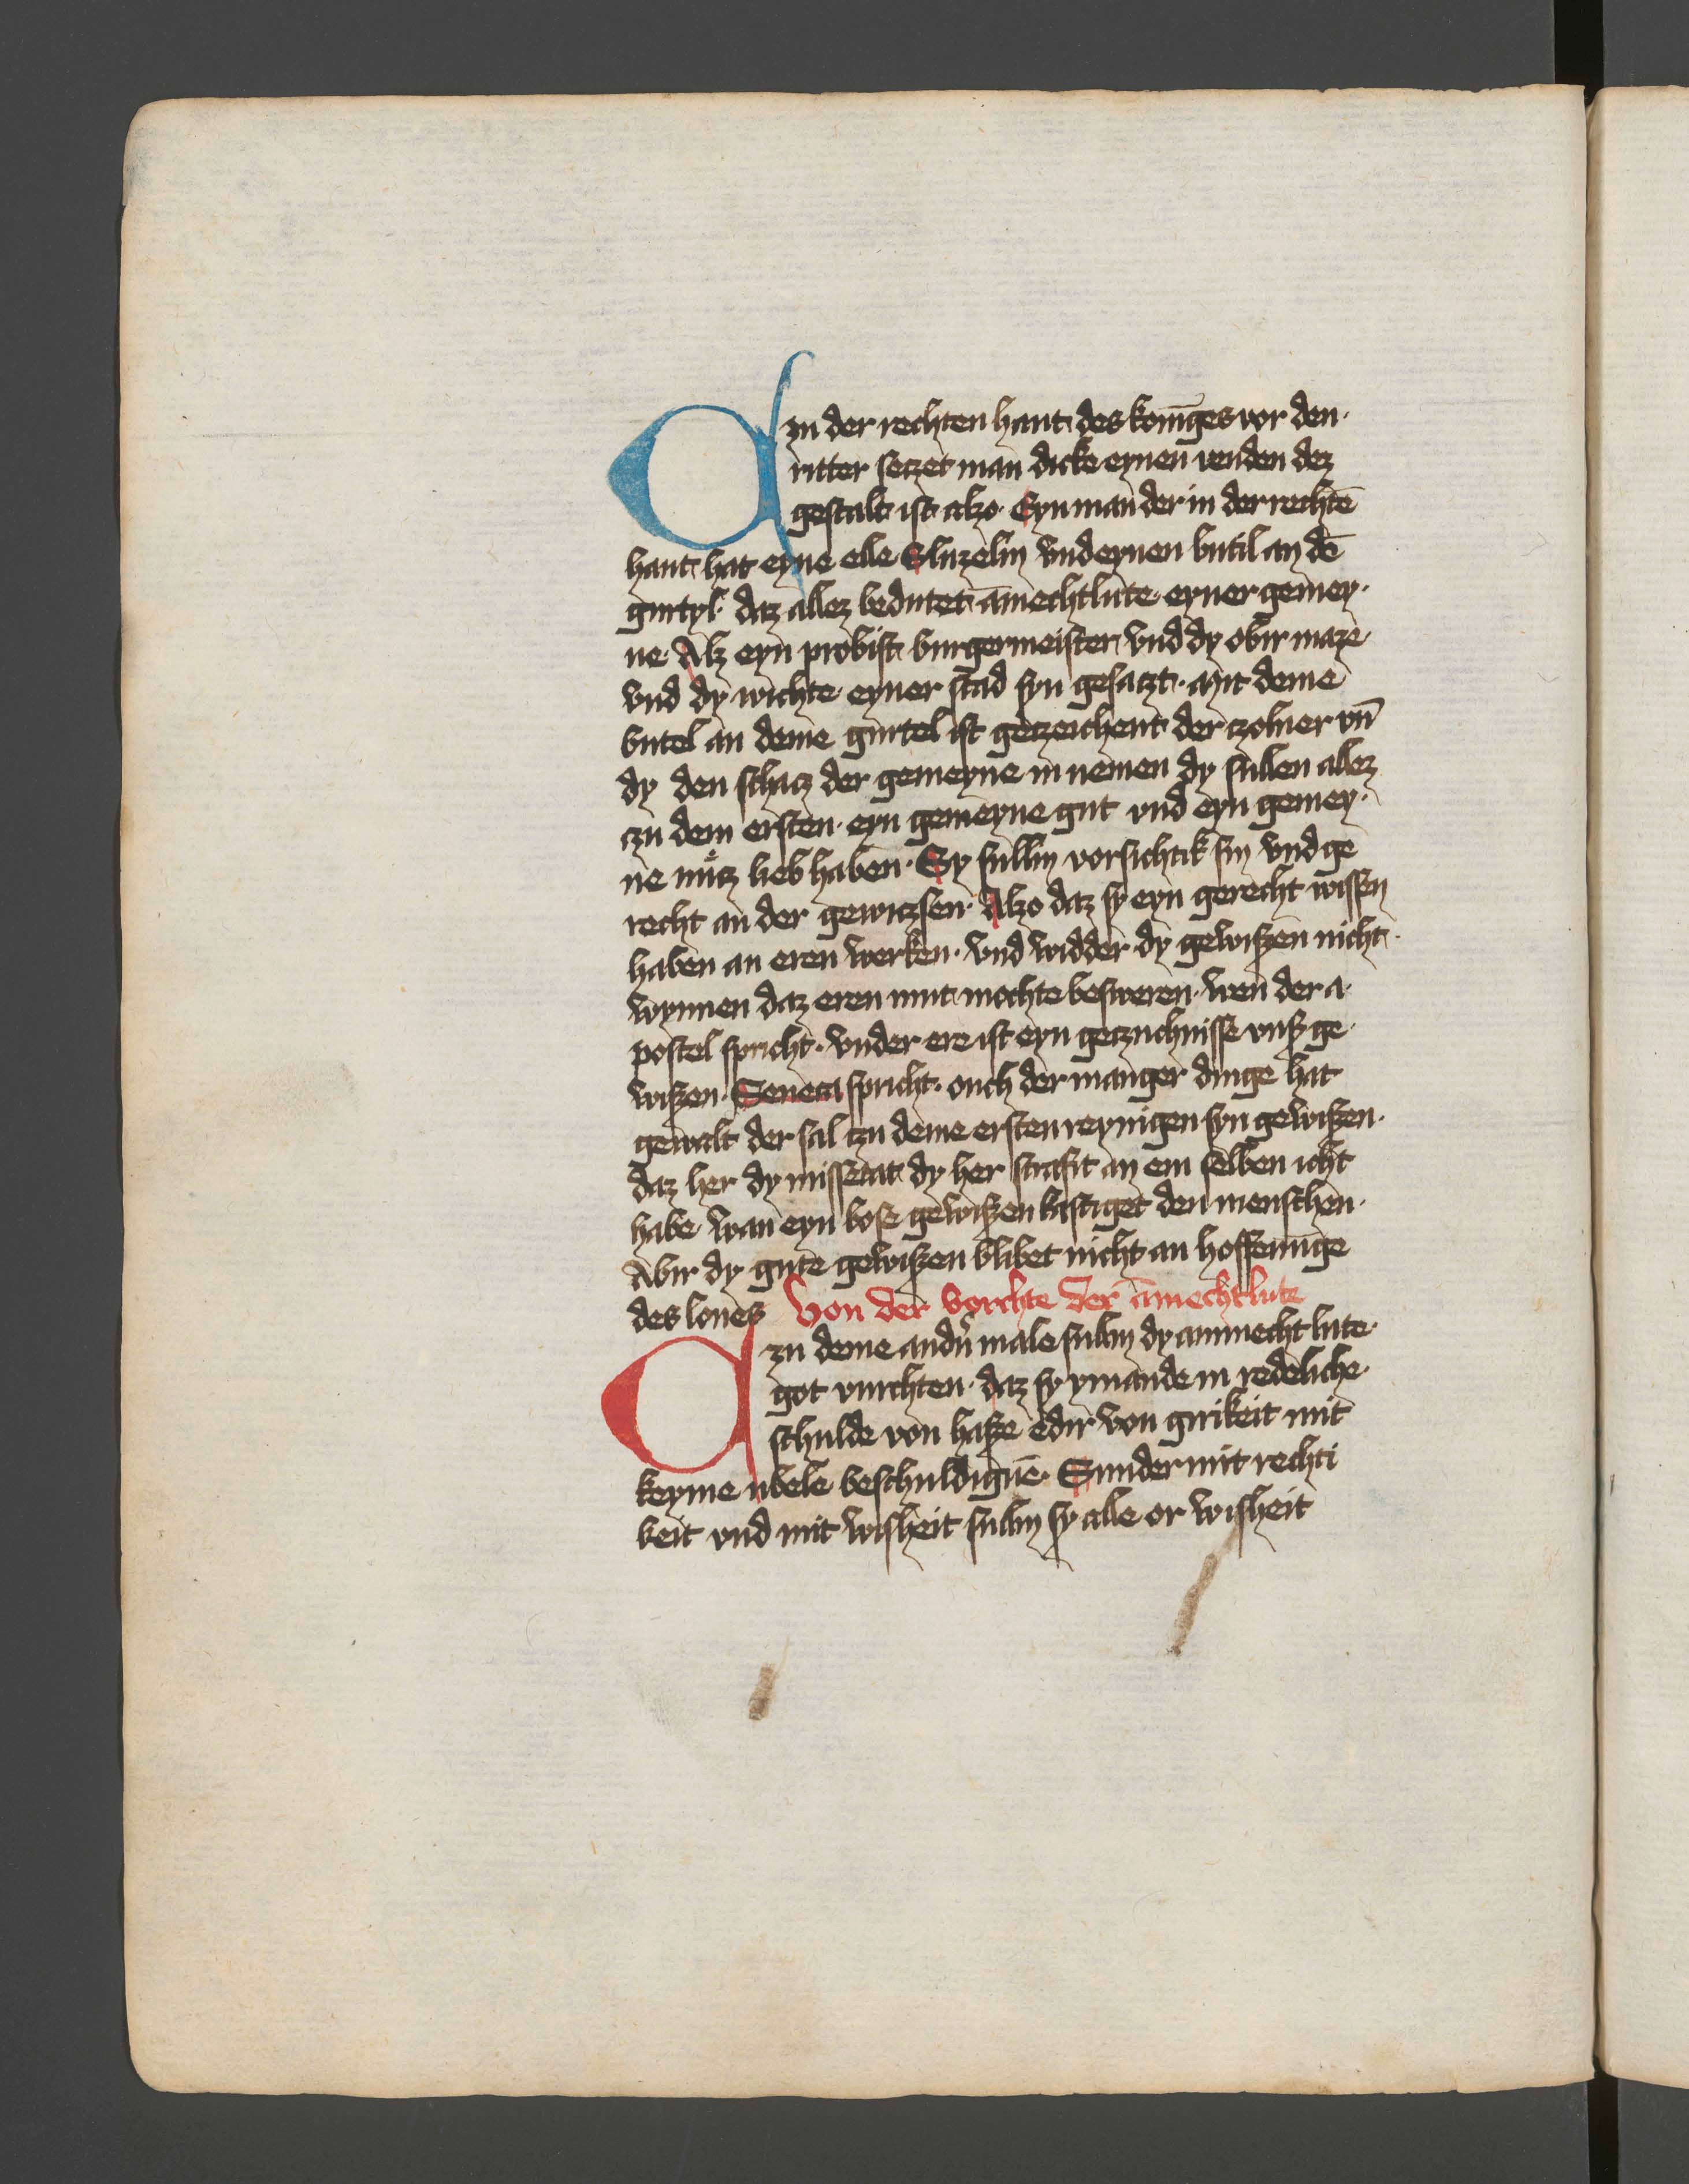 Czu der rechten hant des konīges vor den·
ritter seczet man dicke eynen venden dez
gestalt ist alzo· Eyn man der in der rechtē
hant hat eyne elle Sluzelin vnd eynen butil an dē
gurtyl· daz allez bedutet āmechtlute eyner gemey·
ne Alz eyn probist burgermeister vnd dy obir maze
vnd dy wichte eyner stad syn gesaczt· Mit deme
butel an deme gurtel ist geczeichent der czolner vn̄
dy den schacz der gemeyne in nemen dy sullen allez
czu dem ersten eyn gemeyne gut vnd eyn gemey·
ne nuͦtz lieb haben· Sy sullin vorsichtik sin vnd ge
recht an der gewiczsen· Alzo daz sy eyn gerecht wissen
haben an eren werken· vnd widder dy gewiszen nicht·
wynnen daz eren mut mochte besweren· wen der a·
postel spricht· vnder ere ist eyn geczuchnisse vnsz ge·
wiszen· Seneca spricht· ouch der manger dinge hat
gewalt der sal czu deme ersten reynigen syn gewiszen·
daz her dy missetat dy her strafit an em selben icht
habe wan eyn bose gewiszen kastiget den menschen·
Abir dy gute gewiszen blibet nicht an hoffenūge
des lones Von der vorchte der āmechtlute
Czu deme andir̄ male sullin dy ammecht lute·
got vurchten· daz sy ymande in redeliche·
schulde von hasze edir von girikeit mit
keyme ubele beschuldigūe· Sunder mit rechti
keit vnd mit wisheit sullin sy alle or wisheit